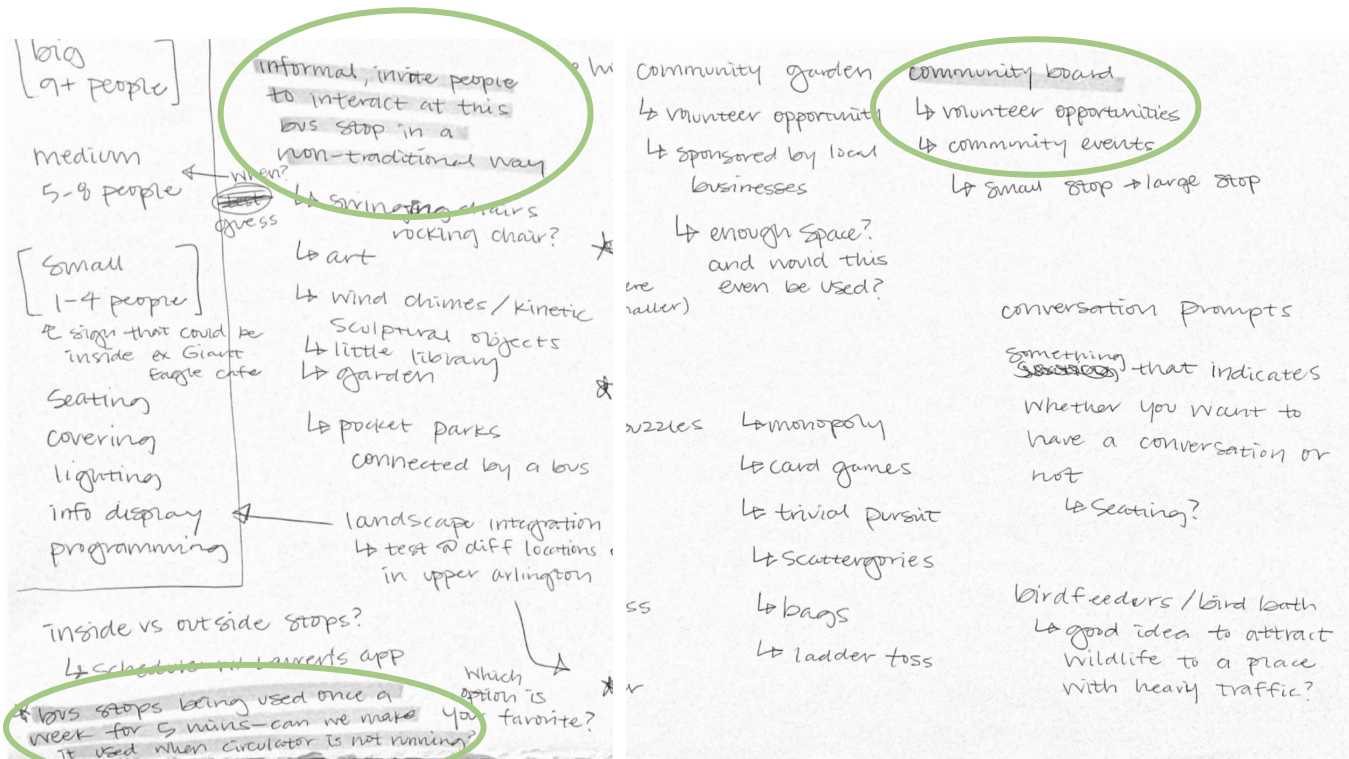 big
9+ people
medium
5-8 people
when?
guess
small
1-4 people
sign that could be
inside ex Giant
Eagle cafe
seating
covering
lighting
info display
programming
informal, invite people
to interact at this
bus stop in a
non-traditional way
↳ swinging chairs
rocking chair?
↳ art
↳ wind chimes / kinetic
sculptural objects
↳ little library
↳ garden
↳ pocket parks
connected by a bus
landscape integration
↳ test @ diff locations
in upper arlington
inside vs outside stops?
app
Which
option is
your favorite?
* bus stops being used once a
week for 5 mins - can we make
it used when circulator is not running?
community garden
↳ volunteer opportunity
↳ sponsored by local
businesses
↳ enough space?
and would this
even be used?
community board
↳ volunteer opportunities
↳ community events
↳ small stop → large stop
conversation prompts
something
that indicates
whether you want to
have a conversation or
not
↳ seating?
↳ monopoly
↳ card games
↳ trivial pursuit
↳ scattergories
↳ bags
↳ ladder toss
birdfeeders / bird bath
↳ good idea to attract
wildlife to a place
with heavy traffic?